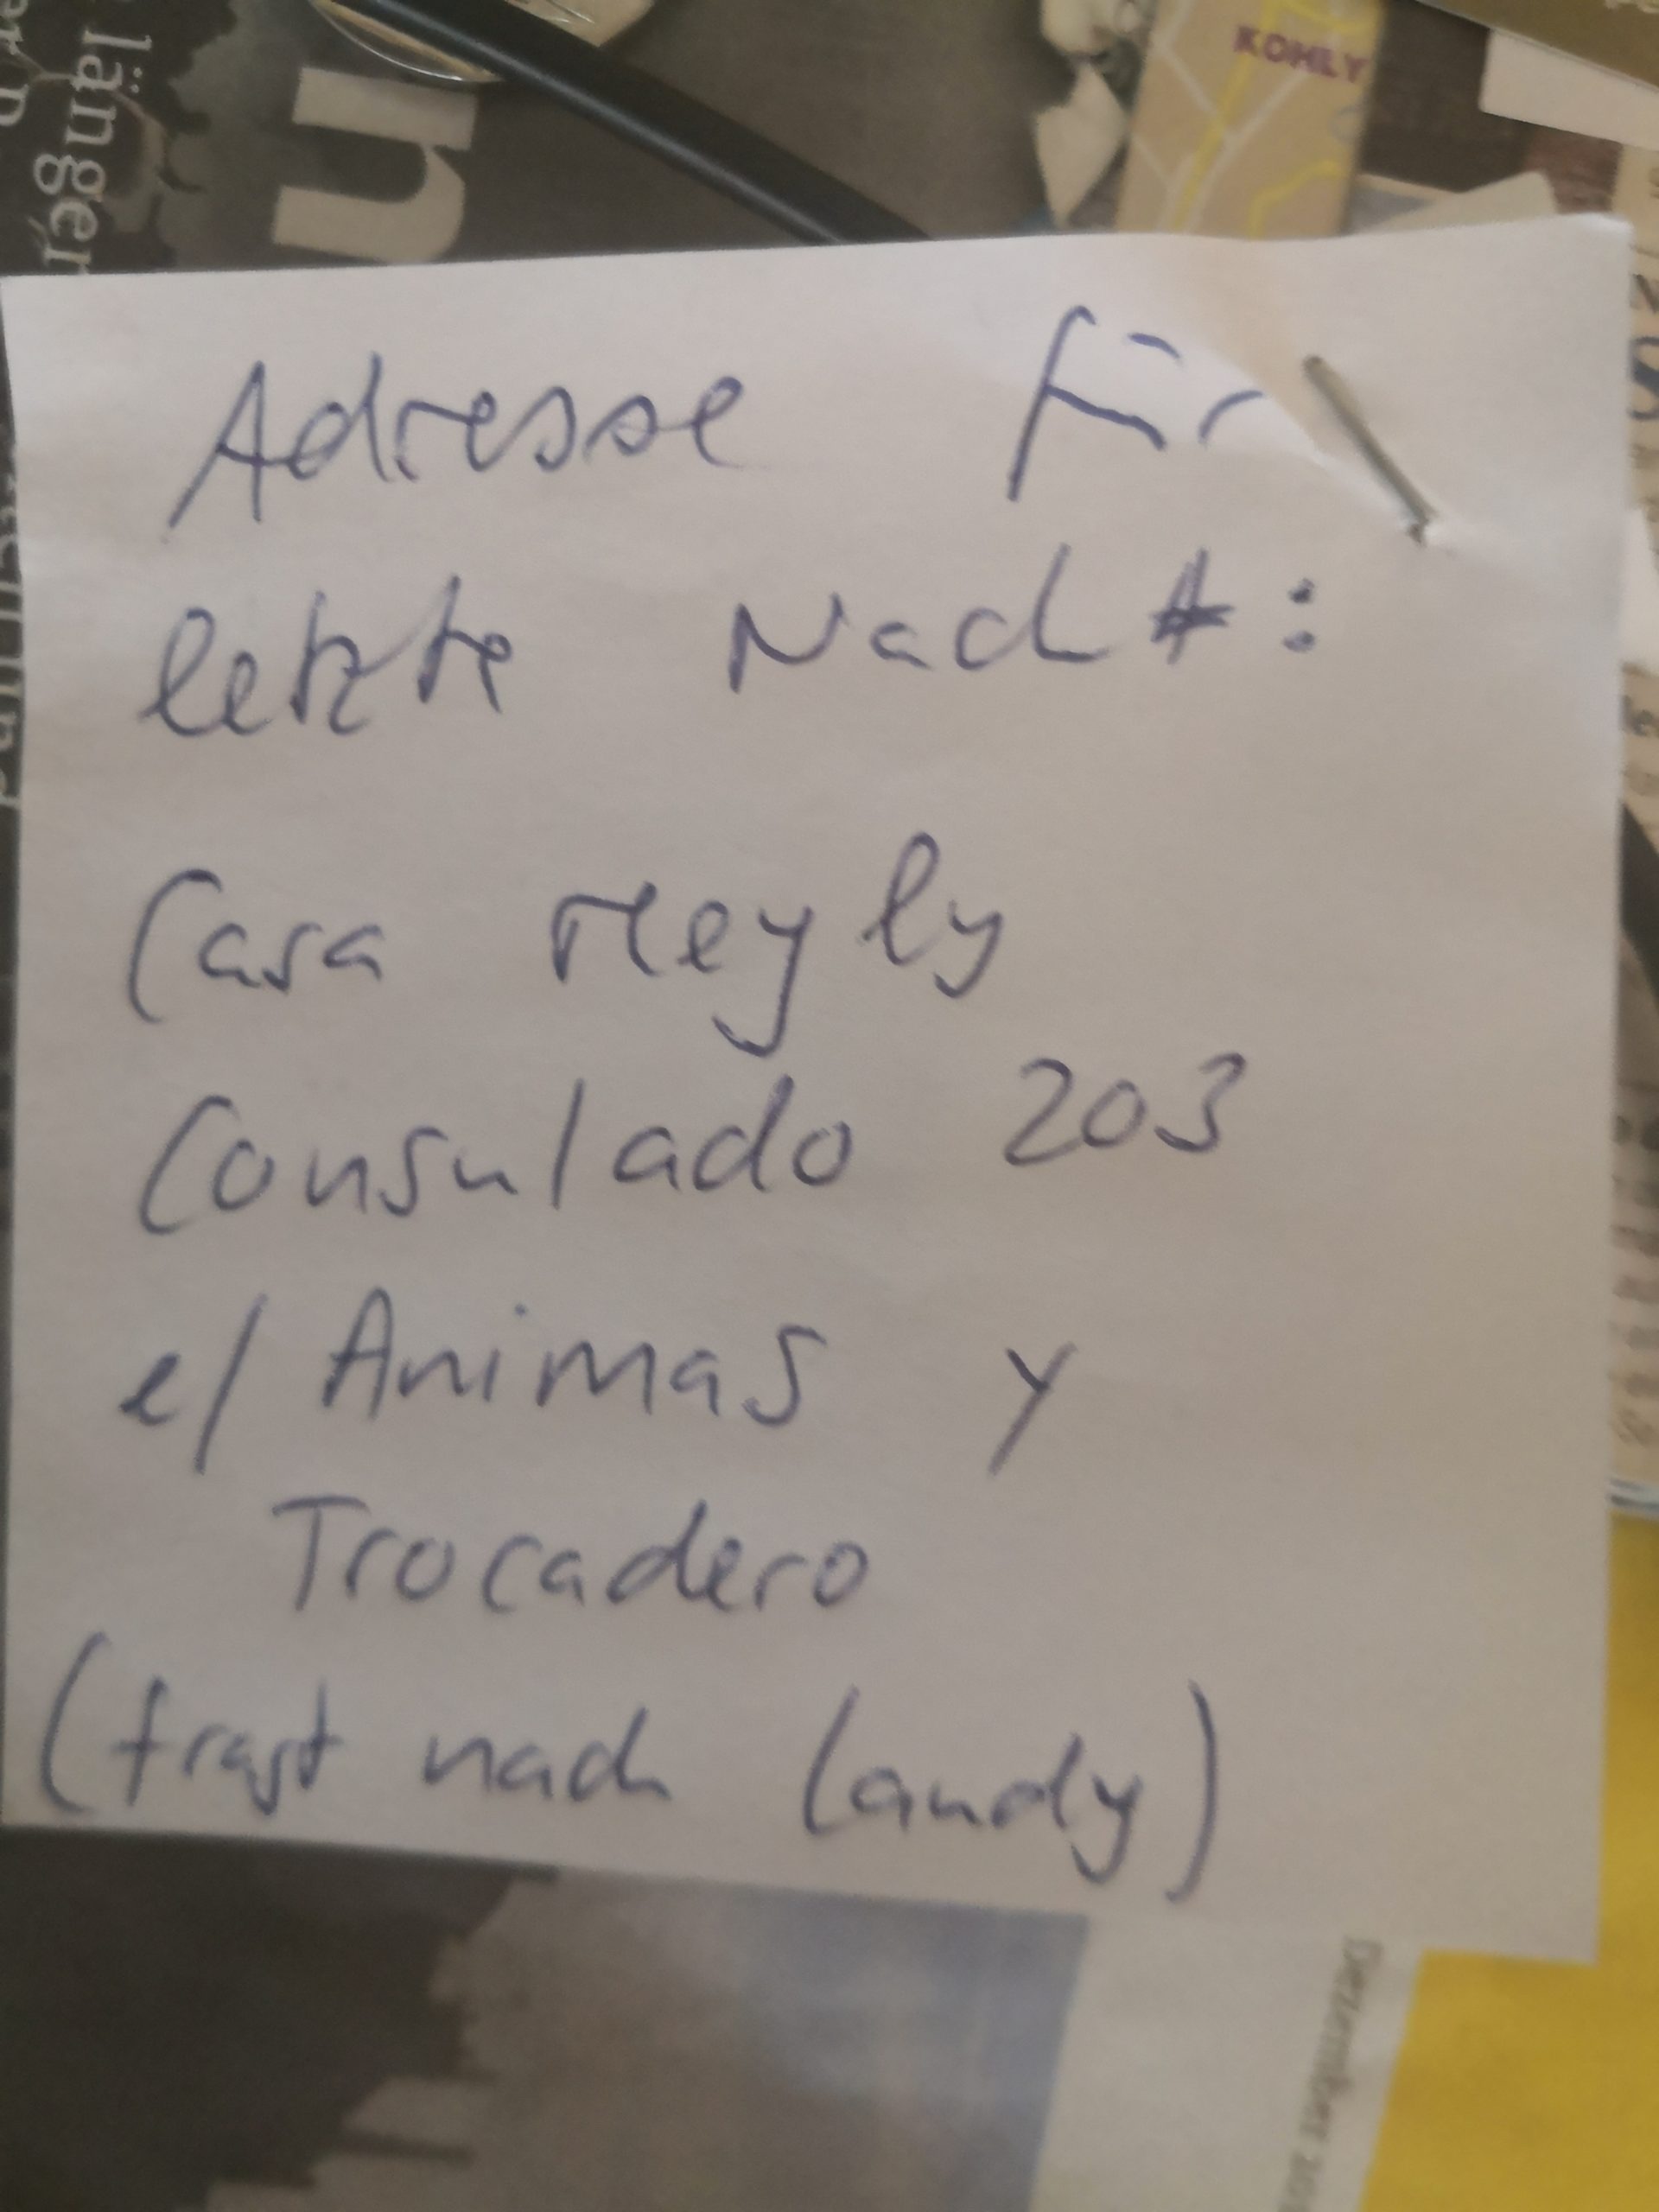 Adresse für
letzte Nacht:
Casa Meyly
Consulado 203
e/ Animas y
Trocadero
(fragt nach Candy)
KOHLY
länger
n
Dezember 201